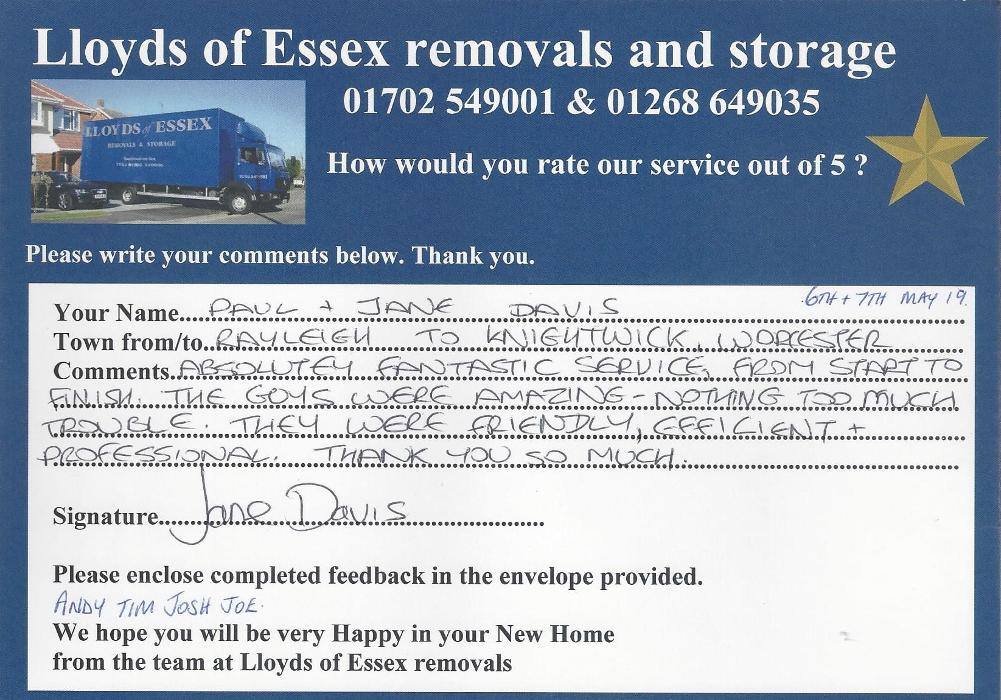 Lloyds of Essex removals and storage
01702 549001 & 01268 649035
LLOYDS of ESSEX
REMOVALS & STORAGE
How would you rate our service out of 5 ?
Please write your comments below. Thank you.
6TH + 7TH MAY 19.
Your Name....PAUL + JANE DAVIS
Town from/to..RAYLEIGH TO KNIGHTWICK, WORCESTER
Comments.ABSOLUTEY FANTASTIC SERVICE, FROM START TO
FINISH. THE GUYS WERE AMAZING - NOTHING TOO MUCH
TROUBLE. THEY WERE FRIENDLY, EFFICIENT +
PROFESSIONAL. THANK YOU SO MUCH.
Signature......Jane Davis
Please enclose completed feedback in the envelope provided.
ANDY TIM JOSH JOE.
We hope you will be very Happy in your New Home
from the team at Lloyds of Essex removals